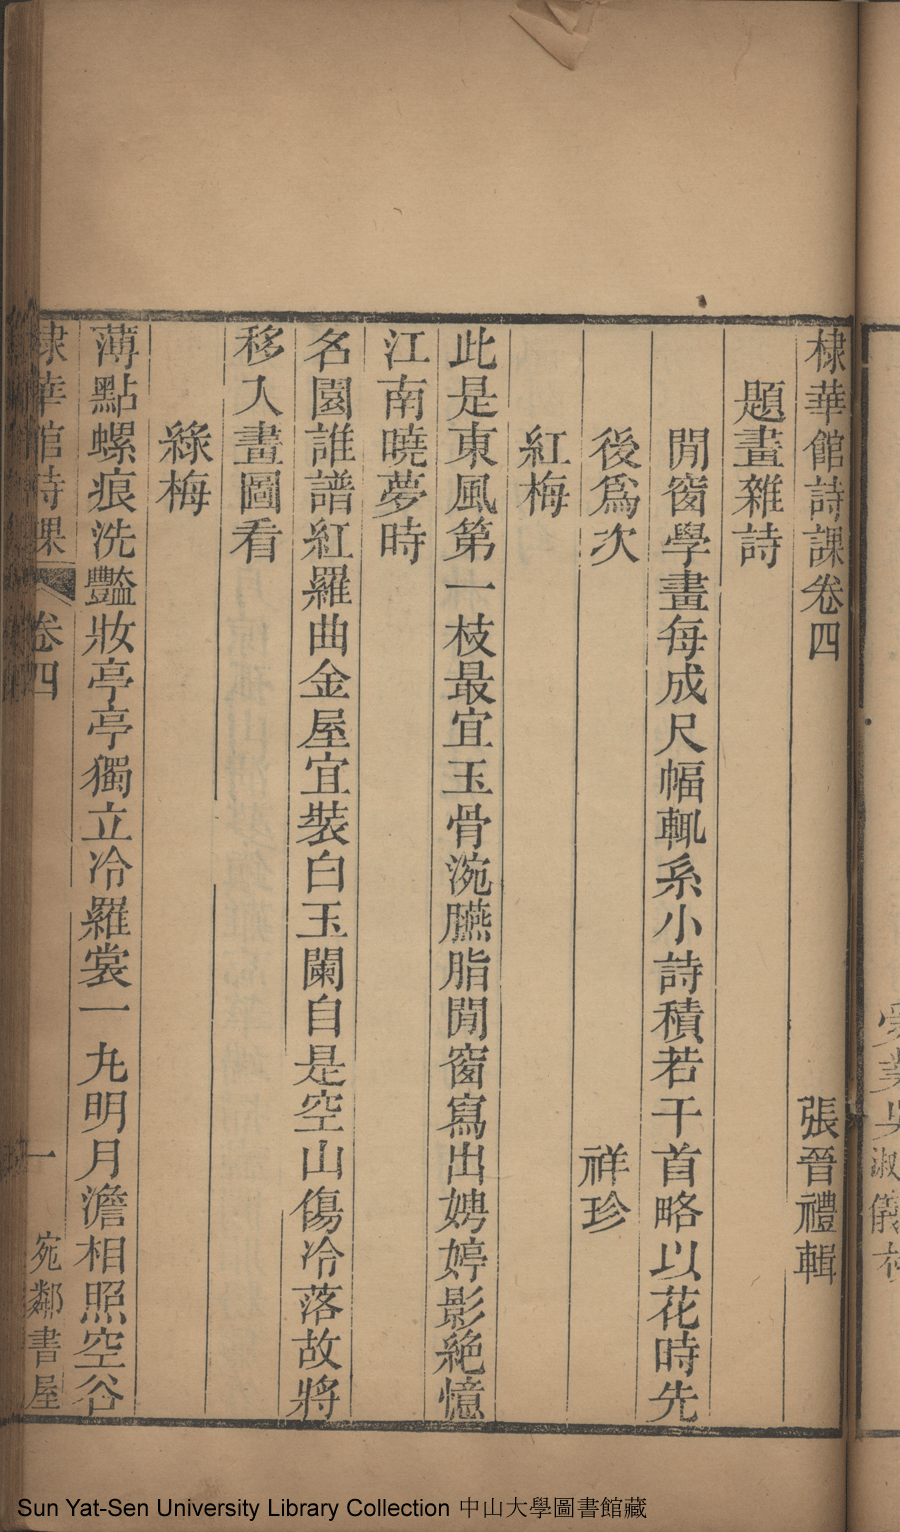 棣華館詩課卷四
張晉禮輯
題畫雜詩
閒窗學畫每成尺幅輒系小詩積若干首略以花時先
後爲次
祥珍
紅梅
此是東風第一枝最宜玉骨涴臙脂閒窗寫出娉婷影絶憶
江南曉夢時
名園誰譜紅羅曲金屋宜裝白玉闌自是空山傷冷落故將
移入畫圖看
綠梅
薄點螺痕洗豔妝亭亭獨立冷羅裳一丸明月澹相照空谷
棣華館詩課
卷四
一
宛鄰書屋
受業吳淑儀校
Sun Yat-Sen University Library Collection 中山大學圖書館藏